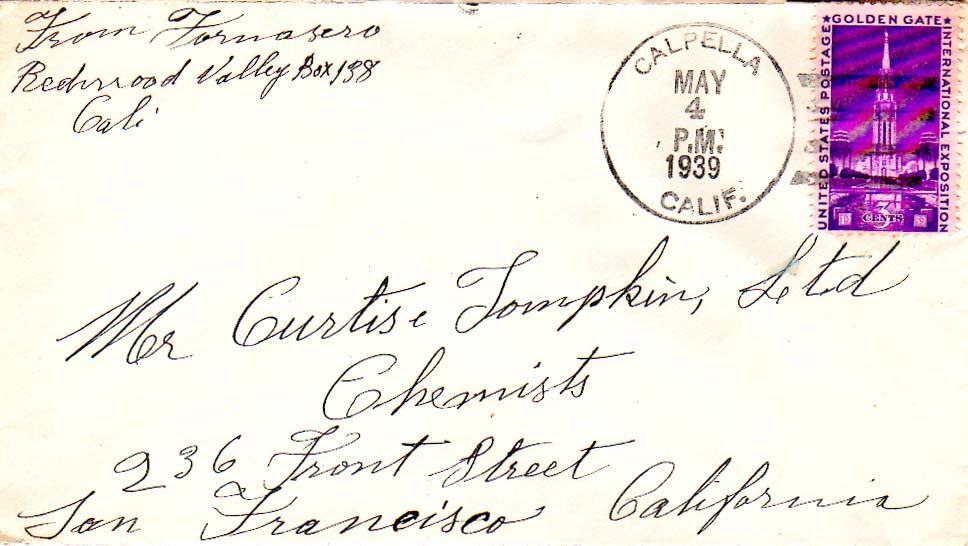 From Fornasero
Redwood Valley Box 138
Cali
CALPELLA
MAY
4
P.M.
1939
CALIF.
★GOLDEN GATE★
UNITED STATES POSTAGE
INTERNATIONAL EXPOSITION
3
CENTS
19 39
Mr Curtis & Tompkin, Ltd
Chemists
236 Front Street
San Francisco California